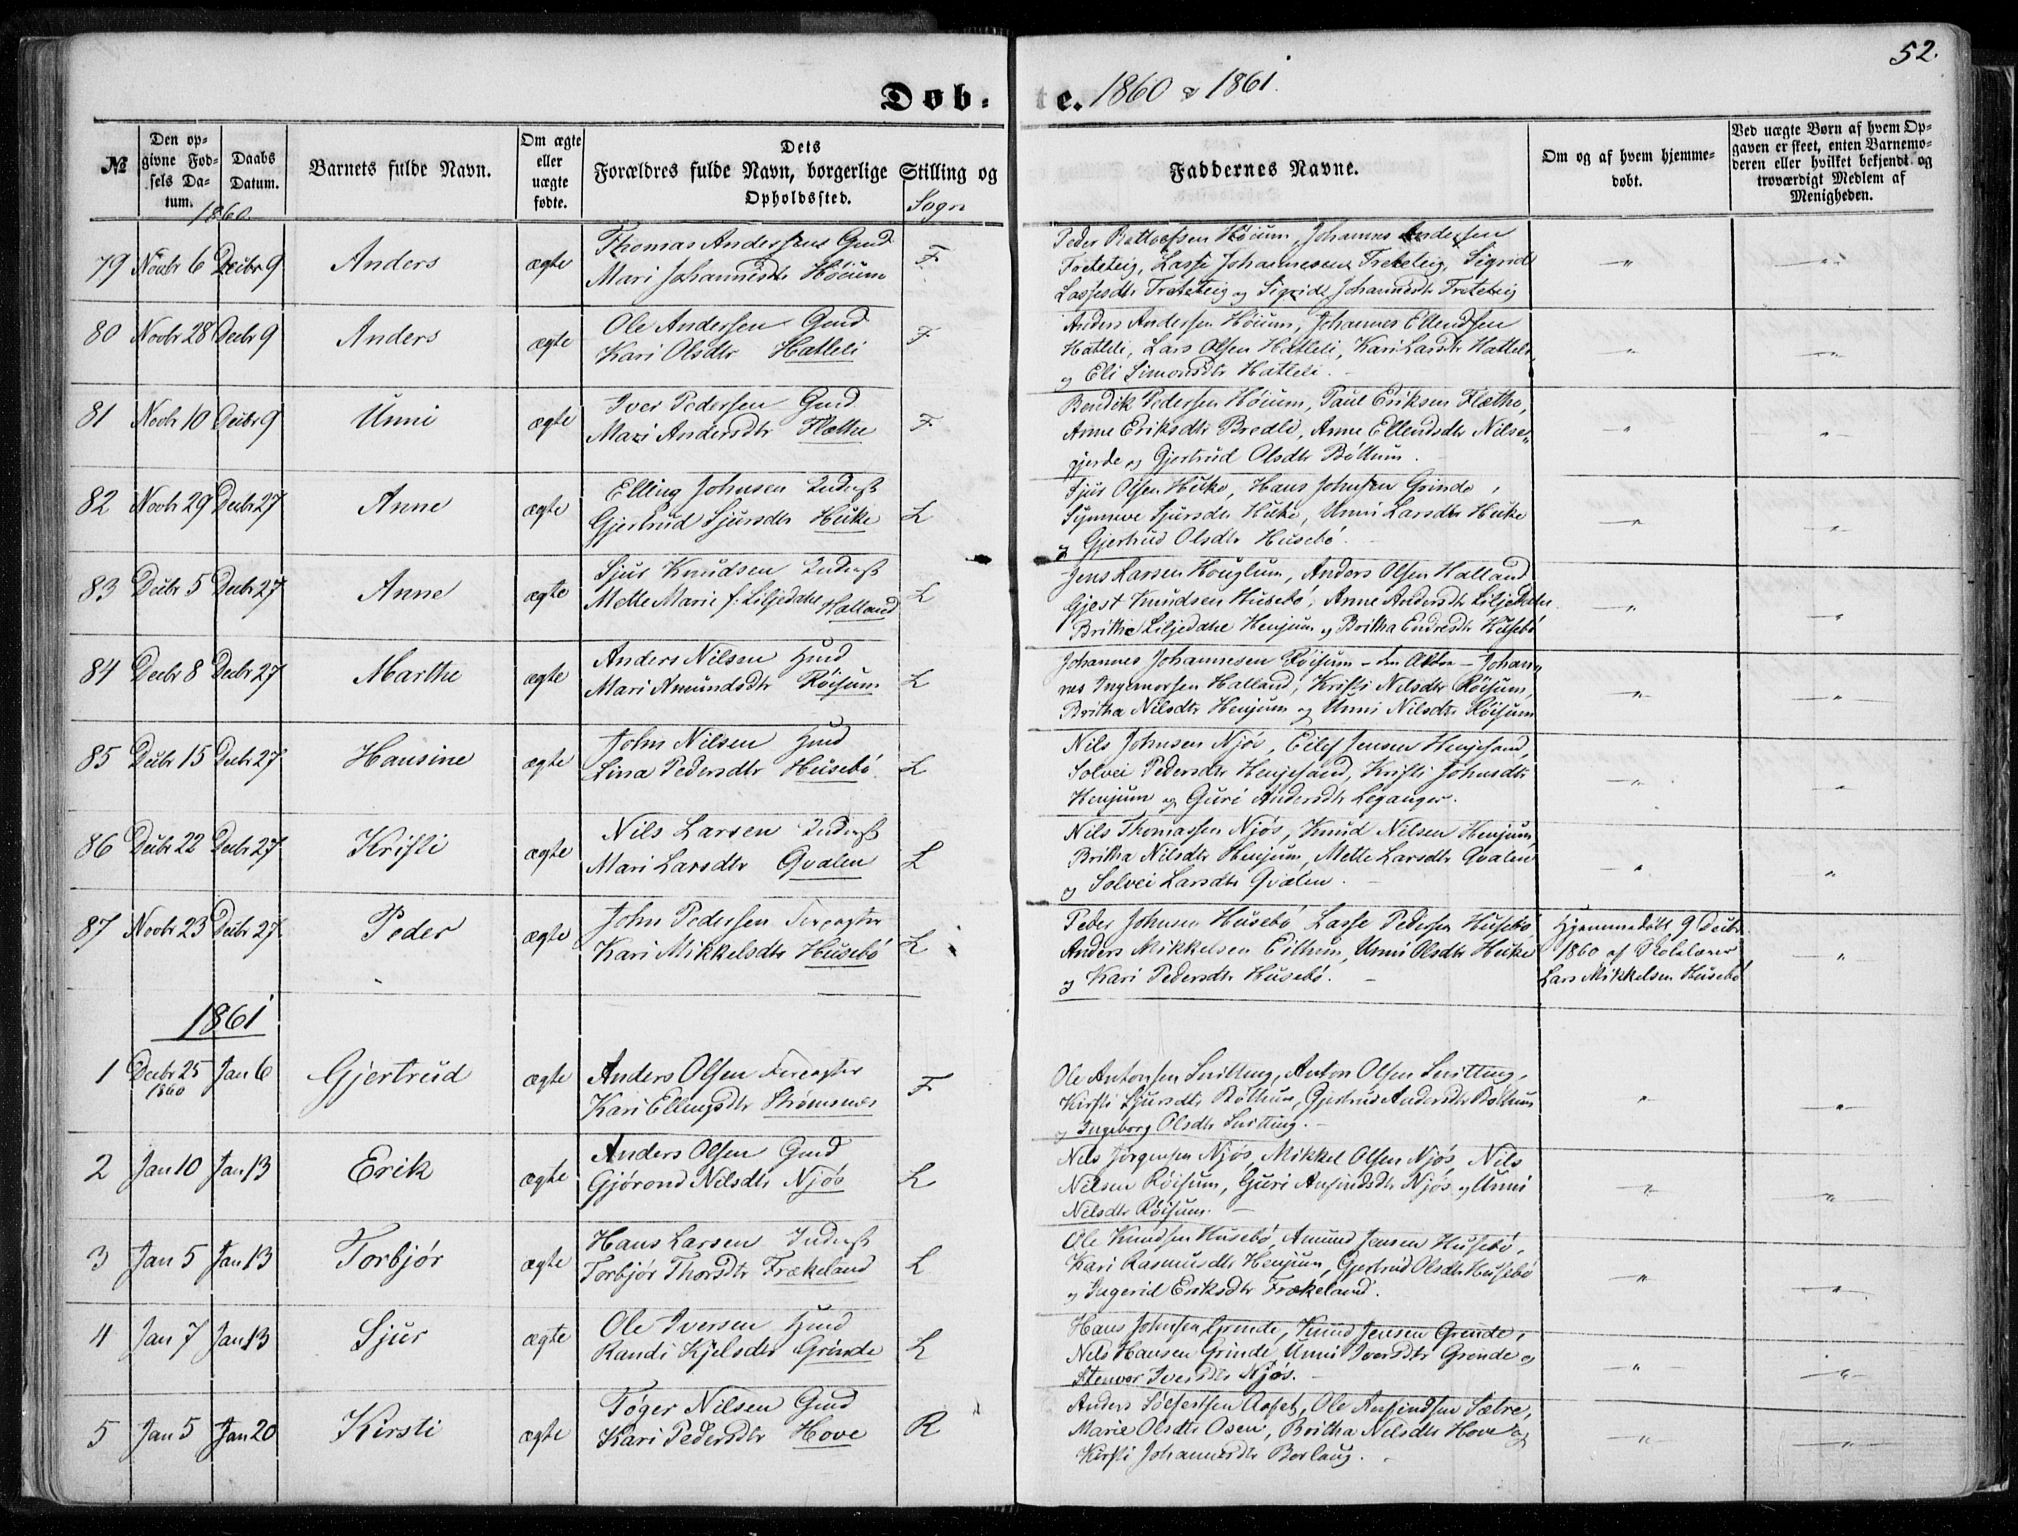 52.
Døb- te. 1860 & 1861.
№
Den opgivne Fødsels Datum.
Daabs Datum.
Barnets fulde Navn.
Om ægte eller uægte fødte.
Dets Forældres fulde Navn, borgerlige Stilling og Opholdssted.
Sogn
Faddernes Navne.
Om og af hvem hjemmedøbt.
Ved uægte Børn af hvem Opgaven er skeet, enten Barnemoderen eller hvilket bekjendt og troværdigt Medlem af Menigheden.
1860
79 Novbr 6 Decbr 9 Anders ægte Thomas Andersen Gmd F
Mari Johannesdtr Höium
Peder Höium, Johannes Andersen
Freteteig, Lasse Johannesen Freteteig, Sigrid
Lassesdtr Freteteig og Sigrid Johannesdtr Freteteig
80 Novbr 28 Decbr 9 Anders ægte Ole Andersen Gmd F
Kari Olsdtr Hatleli
Anders Andersen Höium, Johannes Ellendsen
Hatleli, Lars Olsen Hatleli, Kari Larsdtr Hatleli
og Eli Simonsdtr Hatleli.
81 Novbr 10 Decbr 9 Unni ægte Iver Pedersen Gmd F
Mari Andersdtr Flæthe
Bendik Pedersen Höium, Paul Eriksen Flæthe,
Anne Eriksdtr Bredli, Anne Ellendsdtr Nilse-
gjerde og Gjertrud Olsdtr Böttum.
82 Novbr 29 Decbr 27 Anne ægte Elling Johnsen Inderst L
Gjertrud Sjursdtr Huke
Sjur Olsen Huke, Hans Johnsen Grinde,
Synneve Sjursdtr Huke, Unni Larsdtr Huke
og Gjertrud Olsdtr Husebö.
83 Decbr 5 Decbr 27 Anne ægte Sjur Knudsen Inderst L
Mette Marie f. Liljedahl Halland
Jens Larsen Houglum, Anders Olsen Halland
Gjest Knudsen Husebö, Anne Andersdtr
Brithe Liljedahl Henjum og Britha Endresdtr Husebö
84 Decbr 8 Decbr 27 Marthe ægte Anders Nilsen Hmd L
Mari Amundsdtr Röisum
Johannes Johannesen Röisum - Johan-
nes Ingemorsen Halland, Kristi Nilsdtr Röisum,
Britha Nilsdtr Henjum og Unni Nilsdtr Röisum
85 Decbr 15 Decbr 27 Hansine ægte John Nilsen Hmd L
Lina Pedersdtr Husebö
Nils Johnsen Njös, Eilef Jensen Henjesand,
Solvei Pedersdtr Henjesand, Kristi Johnsdtr
Henjum og Guri Andersdtr Leganger.
86 Decbr 22 Decbr 27 Kristi ægte Nils Larsen Inderst L
Mari Larsdtr Qvalen
Nils Thomassen Njös, Knud Nilsen Henjum,
Britha Nilsdtr Henjum, Mette Larsdtr Qvalen
og Solvei Larsdtr Qvalen.
87 Novbr 23 Decbr 27 Peder ægte John Pedersen L
Kari Mikkelsdtr Husebö
Peder Johnsen Husebö Lasse Pedersen Husebö,
Anders Mikkelsen Eithun, Unni Olsdtr Huke
og Kari Pedersdtr Husebö.
Hjemmedöbt 9 Decbr
1860 af Skolelærer
Lars Mikkelsen Husebö
1861
1 Decbr 25 1860 Jan 6 Gjertrud ægte Anders Olsen F
Kari Ellingsdtr Strömsnes
Ole Antonsen Snitting, Anton Olsen Snitting,
Kirsti Sjursdtr Böthun, Gjertrud Andersdtr Böthun
og Ingeborg Olsdtr Snitting.
2 Jan 10 Jan 13 Erik ægte Anders Olsen Gmd L
Gjörond Nilsdtr Njös
Nils Jörgensen Njös, Mikkel Olsen Njös, Nils
Nilsen Röisum, Guri Anfindsdtr Njös og Unni
Nilsdtr Röisum.
3 Jan 5 Jan 13 Torbjör ægte Hans Larsen Inderst L
Torbjör Thorsdtr Frækeland
Ole Knudsen Husebö, Amund Jensen Husebö,
Kari Rasmusdtr Henjum, Gjertrud Olsdtr Husebö
og Ingerid Eriksdtr Frækeland.
4 Jan 7 Jan 13 Sjur ægte Ole Iversen Hmd L
Randi Kjelsdtr Grinde
Hans Johnsen Grinde, Knud Jensen Grinde,
Nils Hansen Grinde, Unni Iversdtr Grinde og
Stenvor Iversdtr Njös.
5 Jan 5 Jan 20 Kirsti ægte Töger Nilsen Gmd R
Kari Pedersdtr Hove
Anders Aaset, Ole Anfindsen Sætre,
Marie Olsdtr Osen, Britha Nilsdtr Hove og
Kirsti Johannesdtr Borlaug.